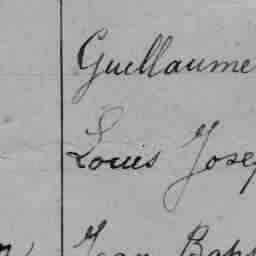 Guillaume
Louis Josep
Jean Bap